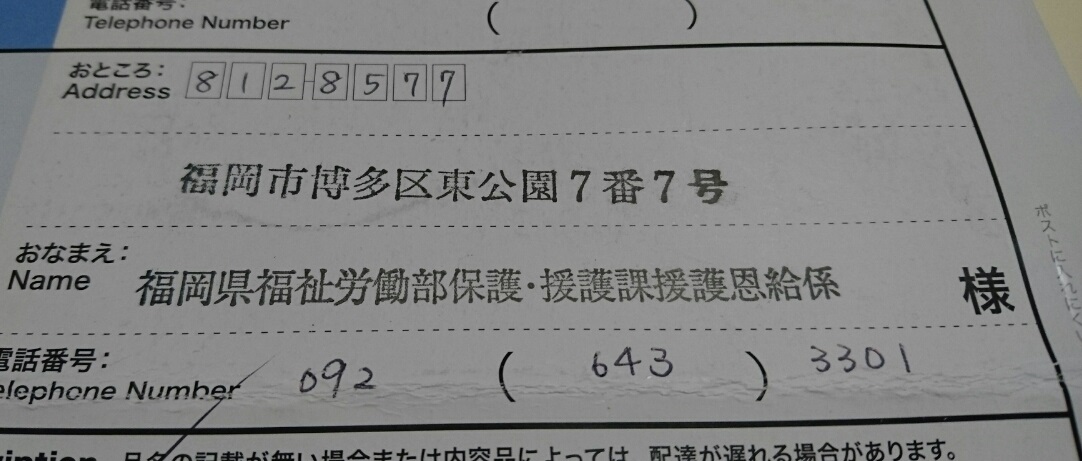 電話番号:
Telephone Number ( )
おところ:
Address 812-8577
福岡市博多区東公園7番7号
おなまえ:
Name 福岡県福祉労働部保護・援護課援護恩給係 様
電話番号:
elephone Number 092 ( 643 ) 3301
品名の記載が無い場合または内容品によっては、配達が遅れる場合があります。
ポストに入れにく